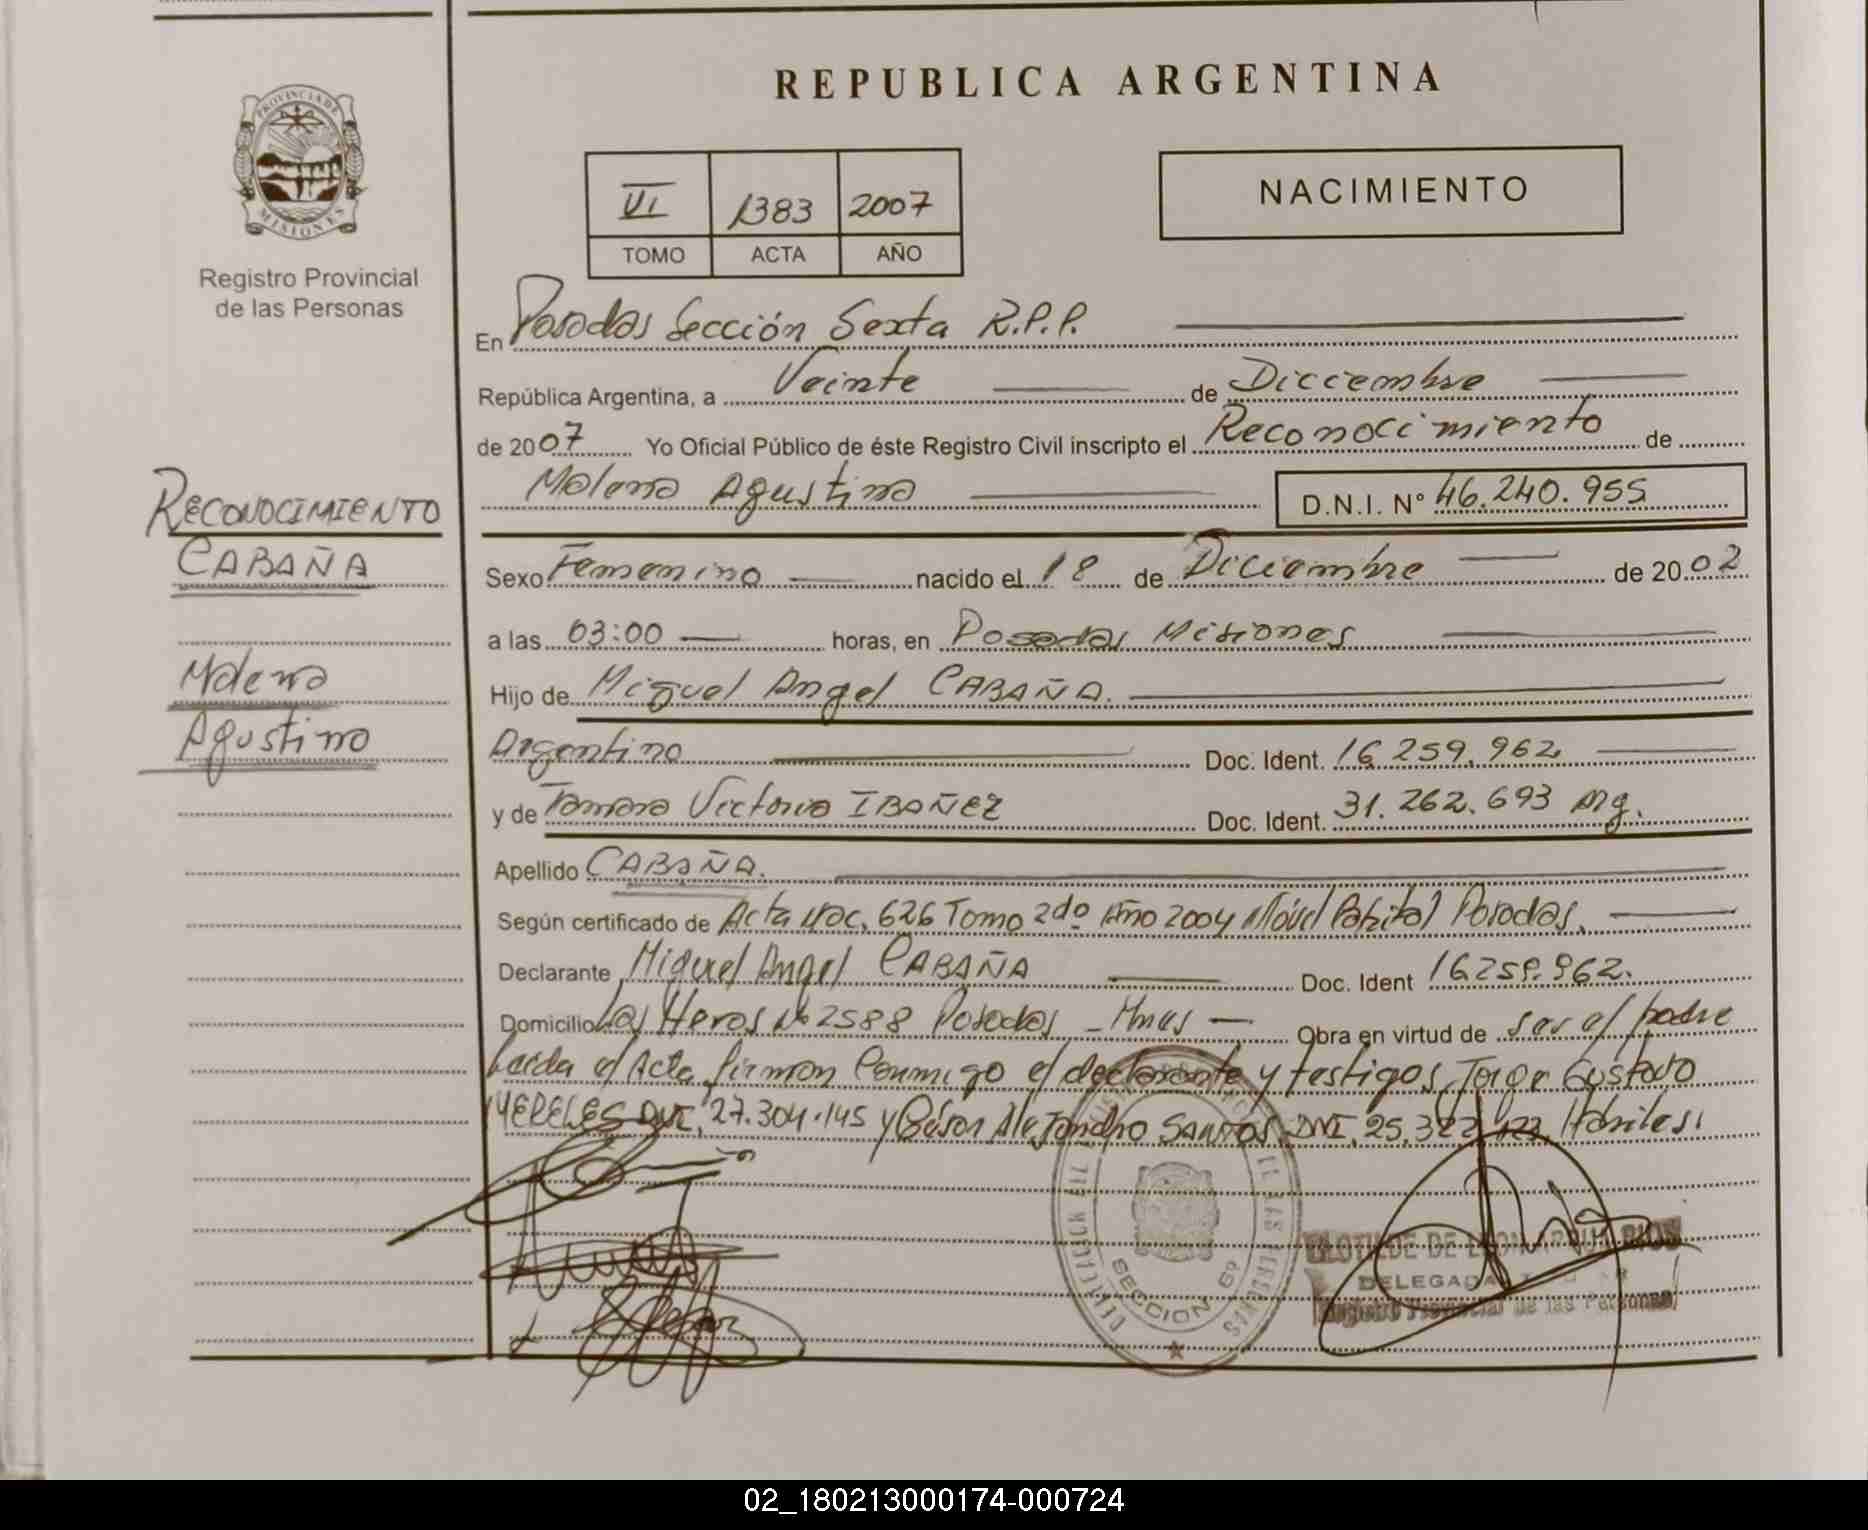 REPUBLICA ARGENTINA
PROVINCIA DE
MISIONES
Registro Provincial
de las Personas
VI 1383 2007
TOMO ACTA AÑO
NACIMIENTO
En Posadas Sección Sexta R.P.P.
República Argentina, a Veinte de Diciembre
de 2007 Yo Oficial Público de éste Registro Civil inscripto el Reconocimiento de
Molena Agustina D.N.I. N° 46.240.955
RECONOCIMIENTO
CABAÑA
Molena
Agustina
Sexo Femenino nacido el 18 de Diciembre de 2002
a las 03:00 horas, en Posadas Misiones
Hijo de Miguel Angel CABAÑA.
Argentino Doc. Ident. 16.259.962
y de Tamara Victoria IBAÑEZ Doc. Ident. 31.262.693 Arg.
Apellido CABAÑA.
Según certificado de Acta Nac. 626 Tomo 2do Año 2004 Móvil Posadas.
Declarante Miguel Angel CABAÑA Doc. Ident 16.259.962.
Domicilio Los Heros N° 2588 Posadas - Mnes Obra en virtud de ser el padre
Leída el Acta firman conmigo el declarante y testigos Jorge Gustavo
MEPELES DNI. 27.304.145 y César Alejandro SANTOS DNI. 25. Hábiles.
SECCION 6ª
CLOTILDE DE RIOS
DELEGADA
Registro Provincial de las Personas
02_180213000174-000724